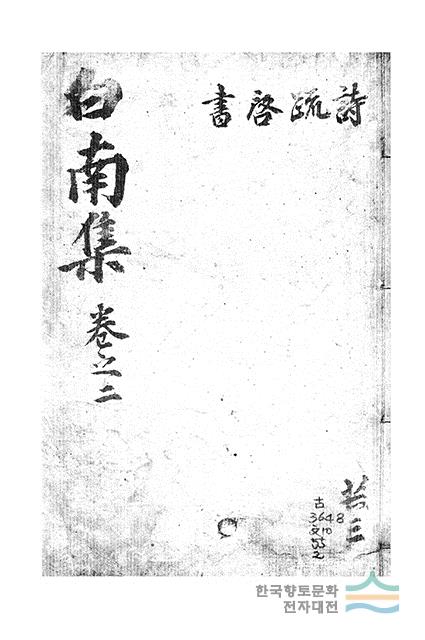 詩疏啓書
白南集 卷之二
共三
古
3648
文10
한국향토문화
전자대전